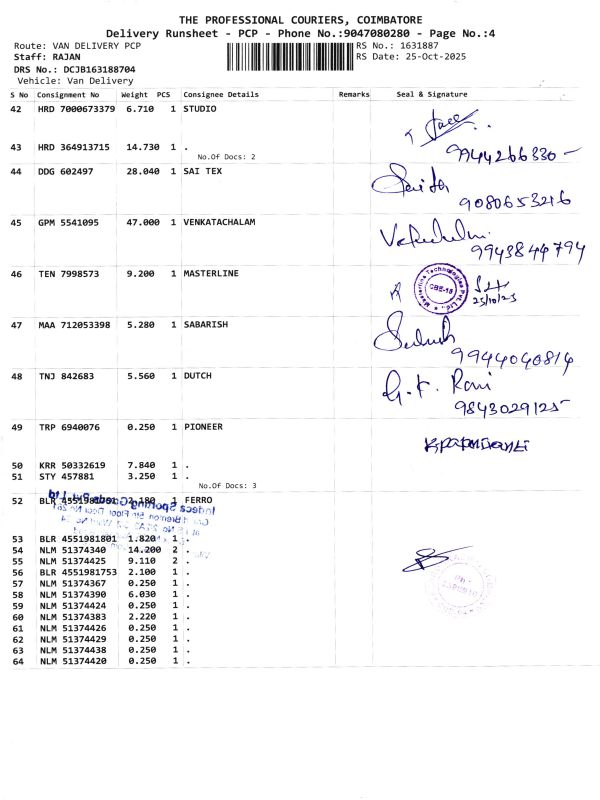 THE PROFESSIONAL COURIERS, COIMBATORE
Delivery Runsheet - PCP - Phone No.:9047080280 - Page No.:4
Route: VAN DELIVERY PCP RS No.: 1631887
Staff: RAJAN RS Date: 25-Oct-2025
DRS No.: DCJB163188704
Vehicle: Van Delivery
S No Consignment No Weight PCS Consignee Details Remarks Seal & Signature
42 HRD 7000673379 6.710 1 STUDIO
43 HRD 364913715 14.730 1 . 9944266330
No.Of Docs: 2
44 DDG 602497 28.040 1 SAI TEX
9080653216
45 GPM 5541095 47.000 1 VENKATACHALAM
9943844794
46 TEN 7998573 9.200 1 MASTERLINE
Masterline Technologies Pvt. Ltd. CBE-18
25/10/25
47 MAA 712053398 5.280 1 SABARISH
9944040814
48 TNJ 842683 5.560 1 DUTCH G.K. Rani
9843029125
49 TRP 6940076 0.250 1 PIONEER
50 KRR 50332619 7.840 1 .
51 STY 457881 3.250 1 .
No.Of Docs: 3
52 BLR 4551981801 2.180 1 FERRO
53 BLR 4551981801 1.820 1 .
54 NLM 51374340 14.200 2 .
55 NLM 51374425 9.110 2 .
56 BLR 4551981753 2.100 1 .
57 NLM 51374367 0.250 1 .
58 NLM 51374390 6.030 1 .
59 NLM 51374424 0.250 1 .
60 NLM 51374383 2.220 1 .
61 NLM 51374426 0.250 1 .
62 NLM 51374429 0.250 1 .
63 NLM 51374438 0.250 1 .
64 NLM 51374420 0.250 1 .